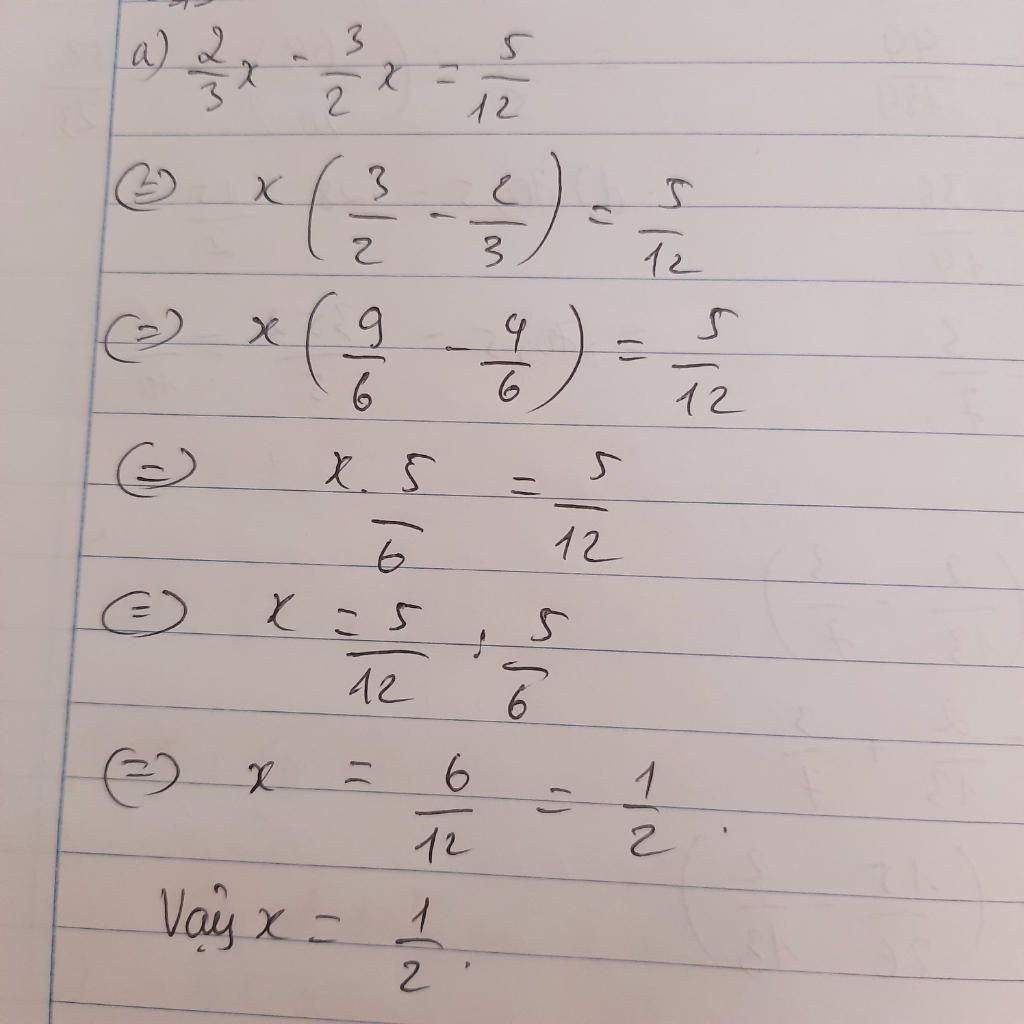 a) 2/3 x - 3/2 x = 5/12
(=) x (3/2 - 2/3) = 5/12
(=) x (9/6 - 4/6) = 5/12
(=) x . 5/6 = 5/12
(=) x = 5/12 : 5/6
(=) x = 6/12 = 1/2 .
Vậy x = 1/2 .